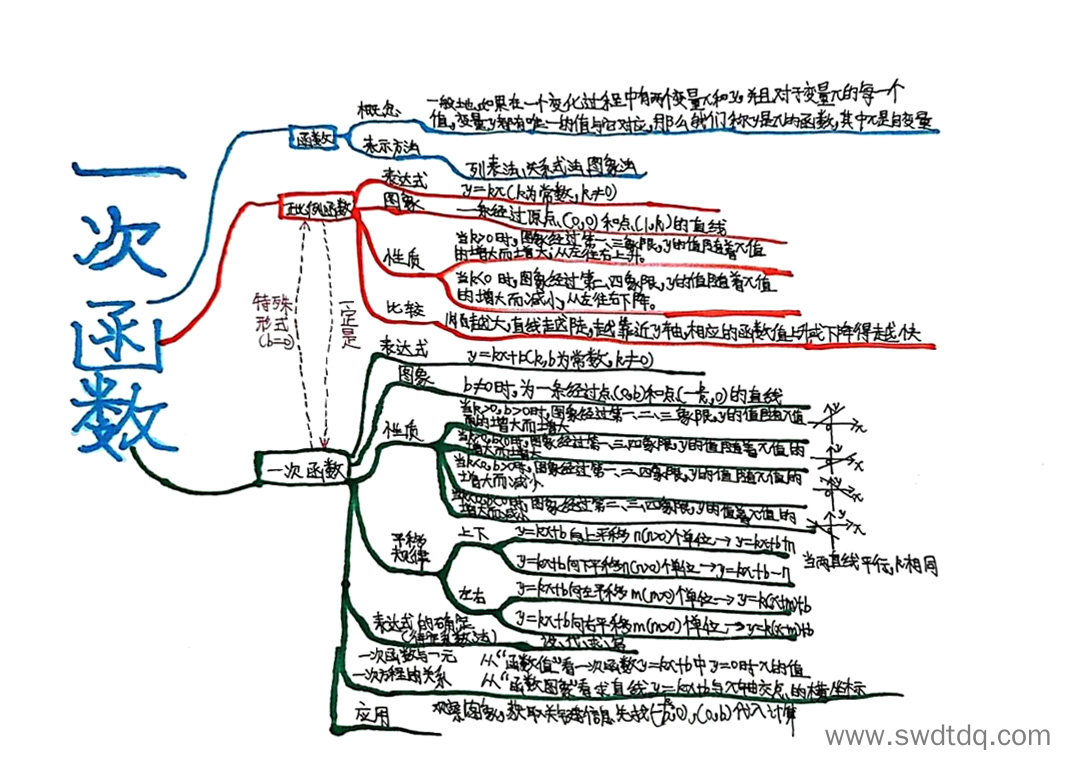 一次函数
函数
概念
一般地,如果在一个变化过程中有两个变量x和y,并且对于变量x的每一个
值,变量y都有唯一的值与它对应,那么我们称y是x的函数,其中x是自变量
表示方法
列表法、关系式法、图象法
正比例函数
表达式
y=kx(k为常数,k≠0)
图象
一条经过原点(0,0)和点(1,k)的直线
性质
当k>0时,图象经过第一、三象限,y的值随着x值
的增大而增大;从左往右上升。
当k<0时,图象经过第二、四象限,y的值随着x值
的增大而减小,从左往右下降。
比较
|k|越大,直线越陡,越靠近y轴,相应的函数值上升或下降得越快
特殊
形式
(b=0)
一定是
一次函数
表达式
y=kx+b(k,b为常数,k≠0)
图象
b≠0时,为一条经过点(0,b)和点(-,0)的直线
性质
当k>0,b>0时,图象经过第一、二、三象限,y的值随x值
的增大而增大
y
x
当k>0,b<0时,图象经过第一、三、四象限,y的值随着x值的
增大而增大
当k<0,b>0时,图象经过第一、二、四象限,y的值随x值的
增大而减小
当k<0,b<0时,图象经过第二、三、四象限,y的值着x值的
增大而减小
平移
规律
上下
y=kx+b向上平移n(n>0)个单位→y=kx+b+n
y=kx+b向下平移n(n>0)个单位→y=kx+b-n
当两直线平行,k相同
左右
y=kx+b向左平移m(m>0)个单位→y=k(x+m)+b
y=kx+b向右平移m(m>0)个单位→y=k(x-m)+b
表达式的确定
(待定系数法)
设、代、求、写
一次函数与一元
一次方程的关系
从“函数值”看一次函数y=kx+b中y=0时x的值
从“函数图象”看求直线y=kx+b与x轴交点的横坐标
应用
观察图象,获取关键信息,先找(,0),(0,b)代入计算
www.swdtdq.com